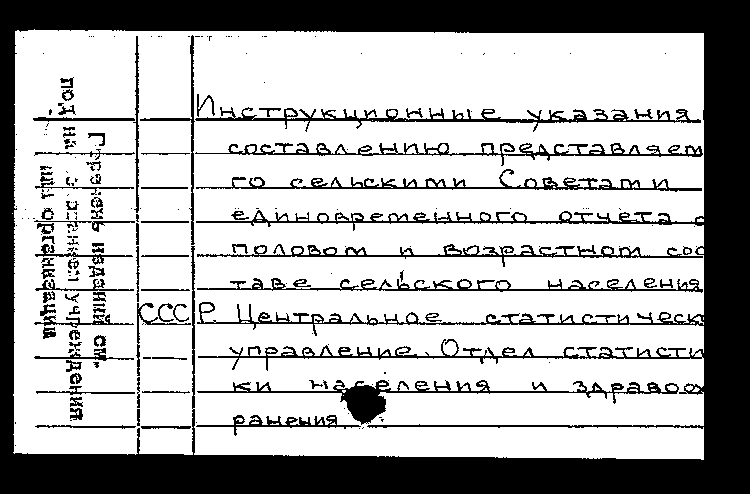 Инструкционные указания
составлению представляем
го сельскими Советами
единовременного отчета о
половом и возрастном сос
таве сельского населения
СССР. Центральное статистическ
управление. Отдел статисти
ки населения и здравоох
ранения.
Перечень изданий см.
под на органиел учреждения
или организации